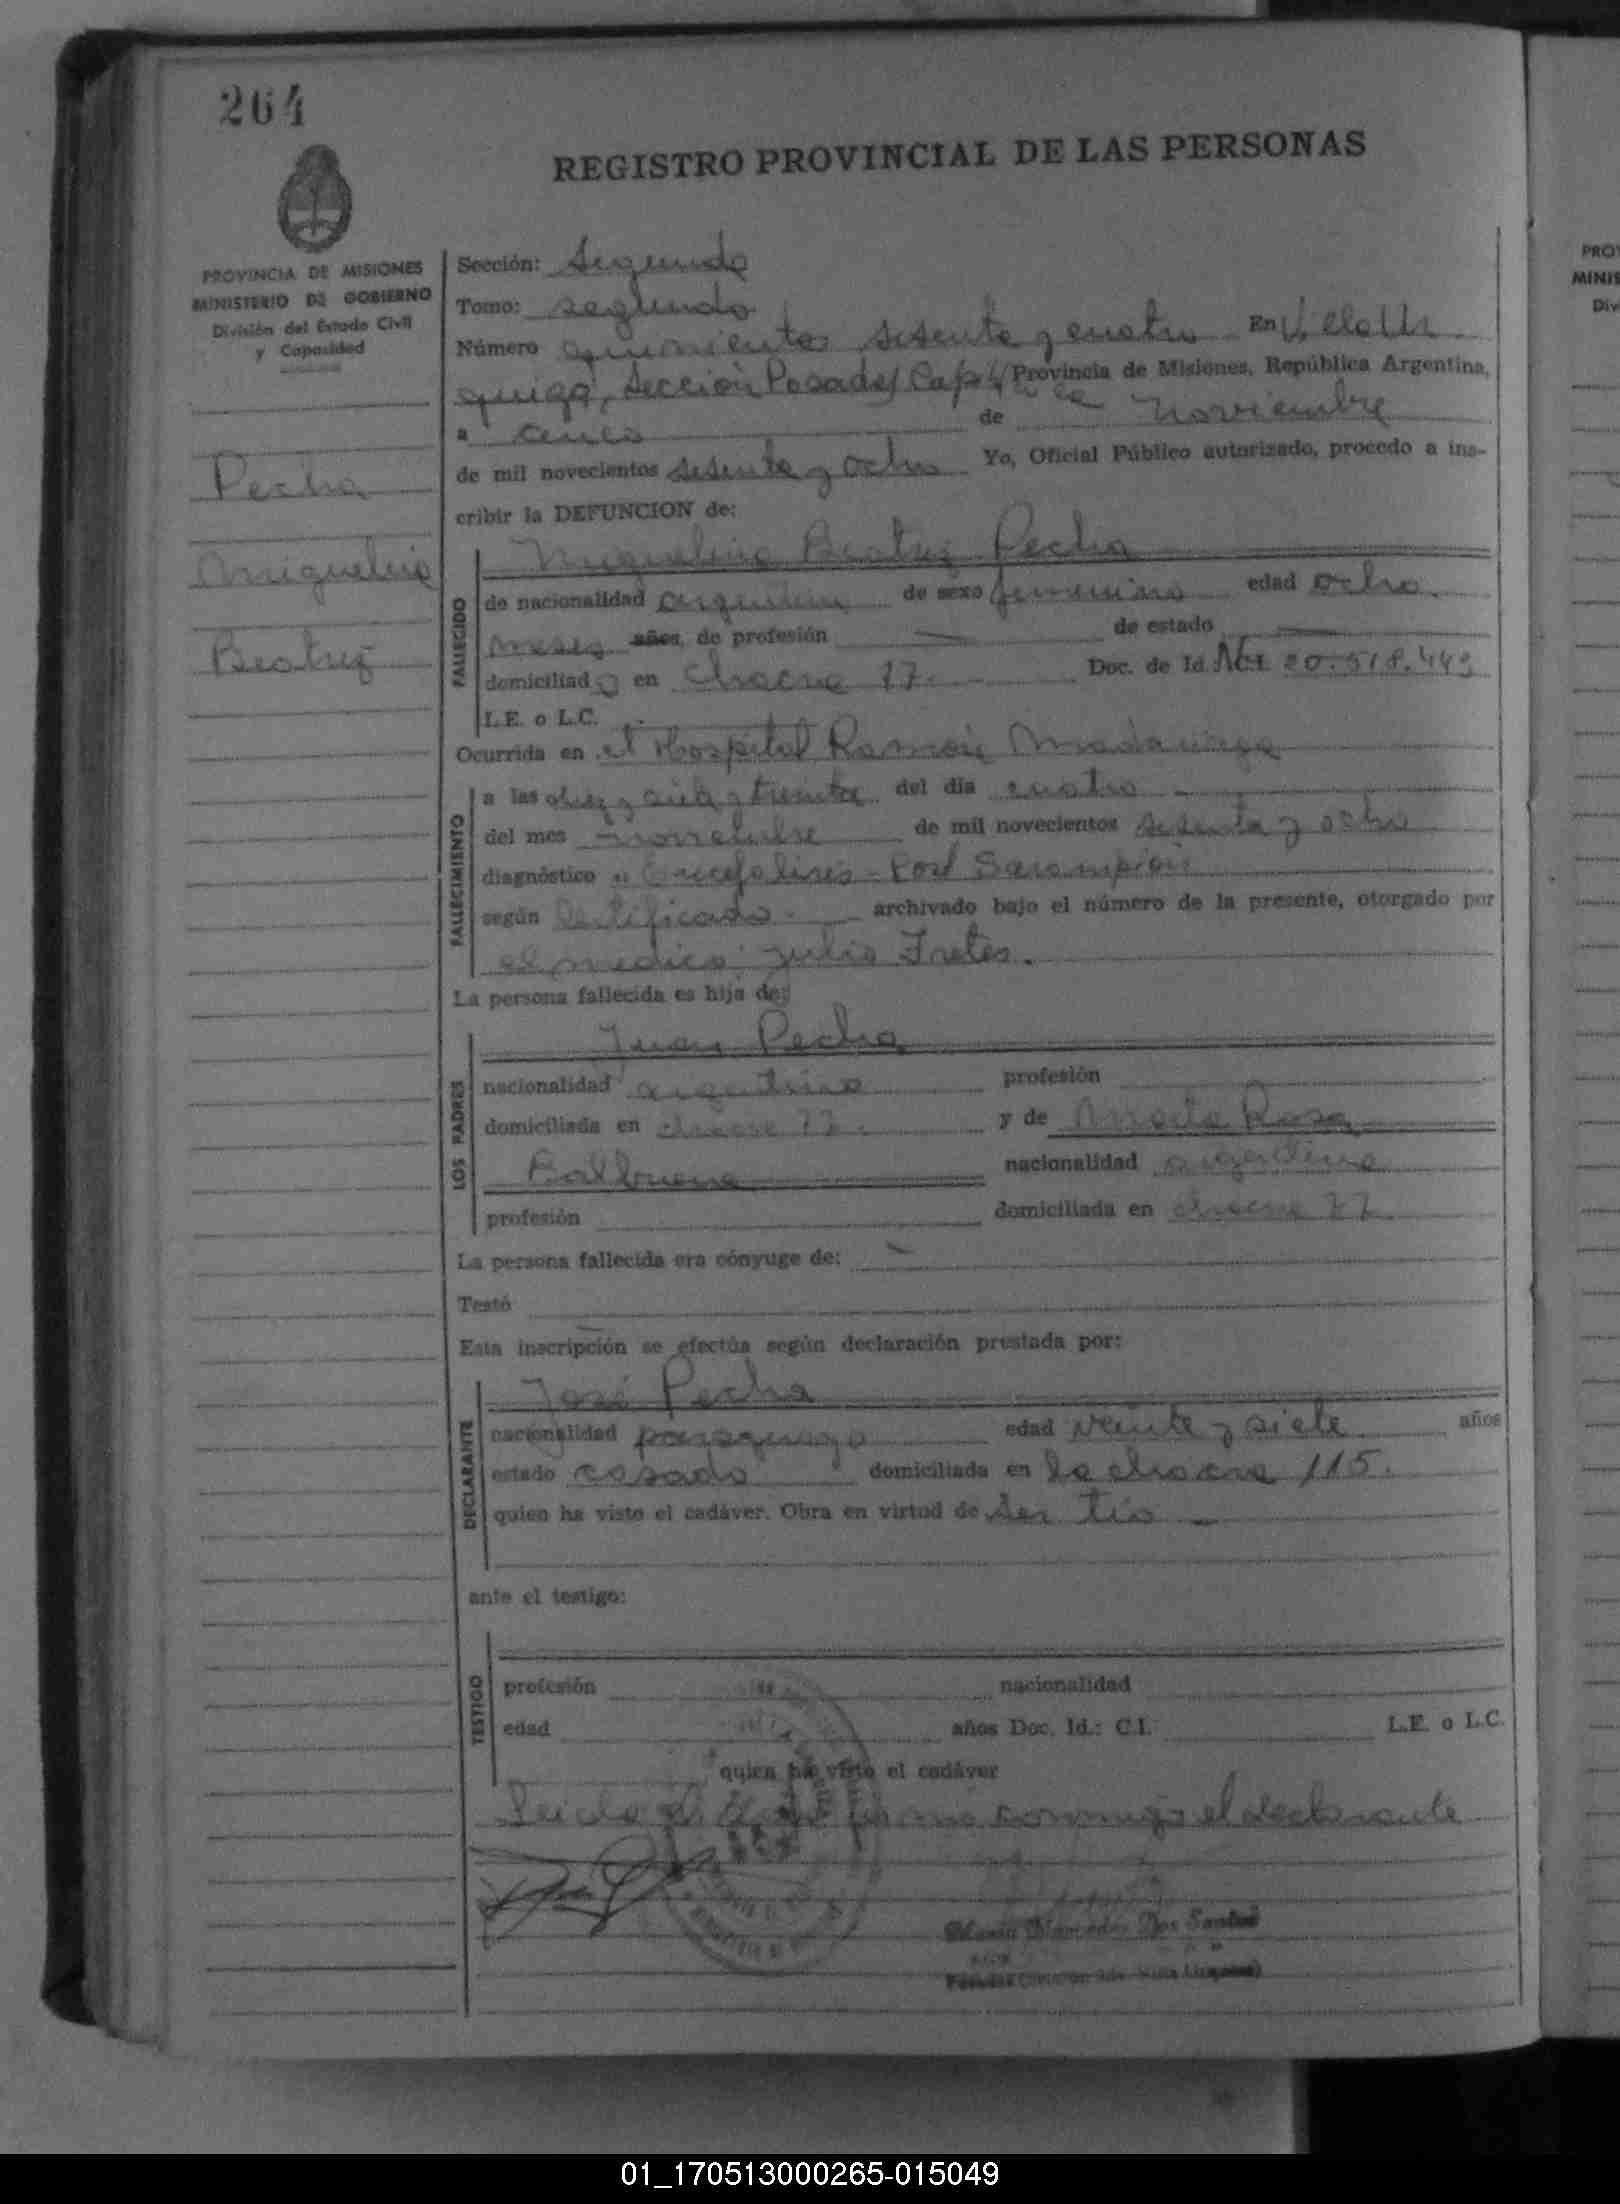 264
REGISTRO PROVINCIAL DE LAS PERSONAS
PROVINCIA DE MISIONES
MINISTERIO DE GOBIERNO
División del Estado Civil
y Capacidad
Pecha
Miguelina
Beatriz
Sección: Segunda
Tomo: segundo
Número quinientos sesenta y cuatro En Villa Ur
quiza, Sección Posadas Capital Provincia de Misiones, República Argentina,
a cinco de noviembre
de mil novecientos sesenta y ocho Yo, Oficial Público autorizado, procedo a ins-
cribir la DEFUNCION de:
FALLECIDO
Miguelina Beatriz Pecha
de nacionalidad argentina de sexo femenino edad ocho
meses años, de profesión — de estado —
domiciliado en Chacra 17. Doc. de Id. 20.518.449
L.E. o L.C.
Ocurrida en el Hospital Ramón Madariaga
FALLECIMIENTO
a las diez y seis y treinta del día cuatro
del mes noviembre de mil novecientos sesenta y ocho
diagnóstico Encefalitis - Post Sarampión
según certificado archivado bajo el número de la presente, otorgado por
el medico Julio Fretes.
La persona fallecida es hija de:
LOS PADRES
Juan Pecha
nacionalidad argentino profesión
domiciliada en chacra y de Rosa
Balbuena nacionalidad argentina
profesión domiciliada en chacra
La persona fallecida era cónyuge de: —
Testó
Esta inscripción se efectúa según declaración prestada por:
DECLARANTE
José Pecha
nacionalidad paraguayo edad veinte y siete años
estado casado domiciliada en la chacra 115.
quien ha visto el cadáver. Obra en virtud de ser tío
ante el testigo:
TESTIGO
profesión nacionalidad
edad años Doc. Id.: C.I. L.E. o L.C.
quien ha visto el cadáver
Leida el acta firma conmigo el declarante
Dos Santos
01_170513000265-015049